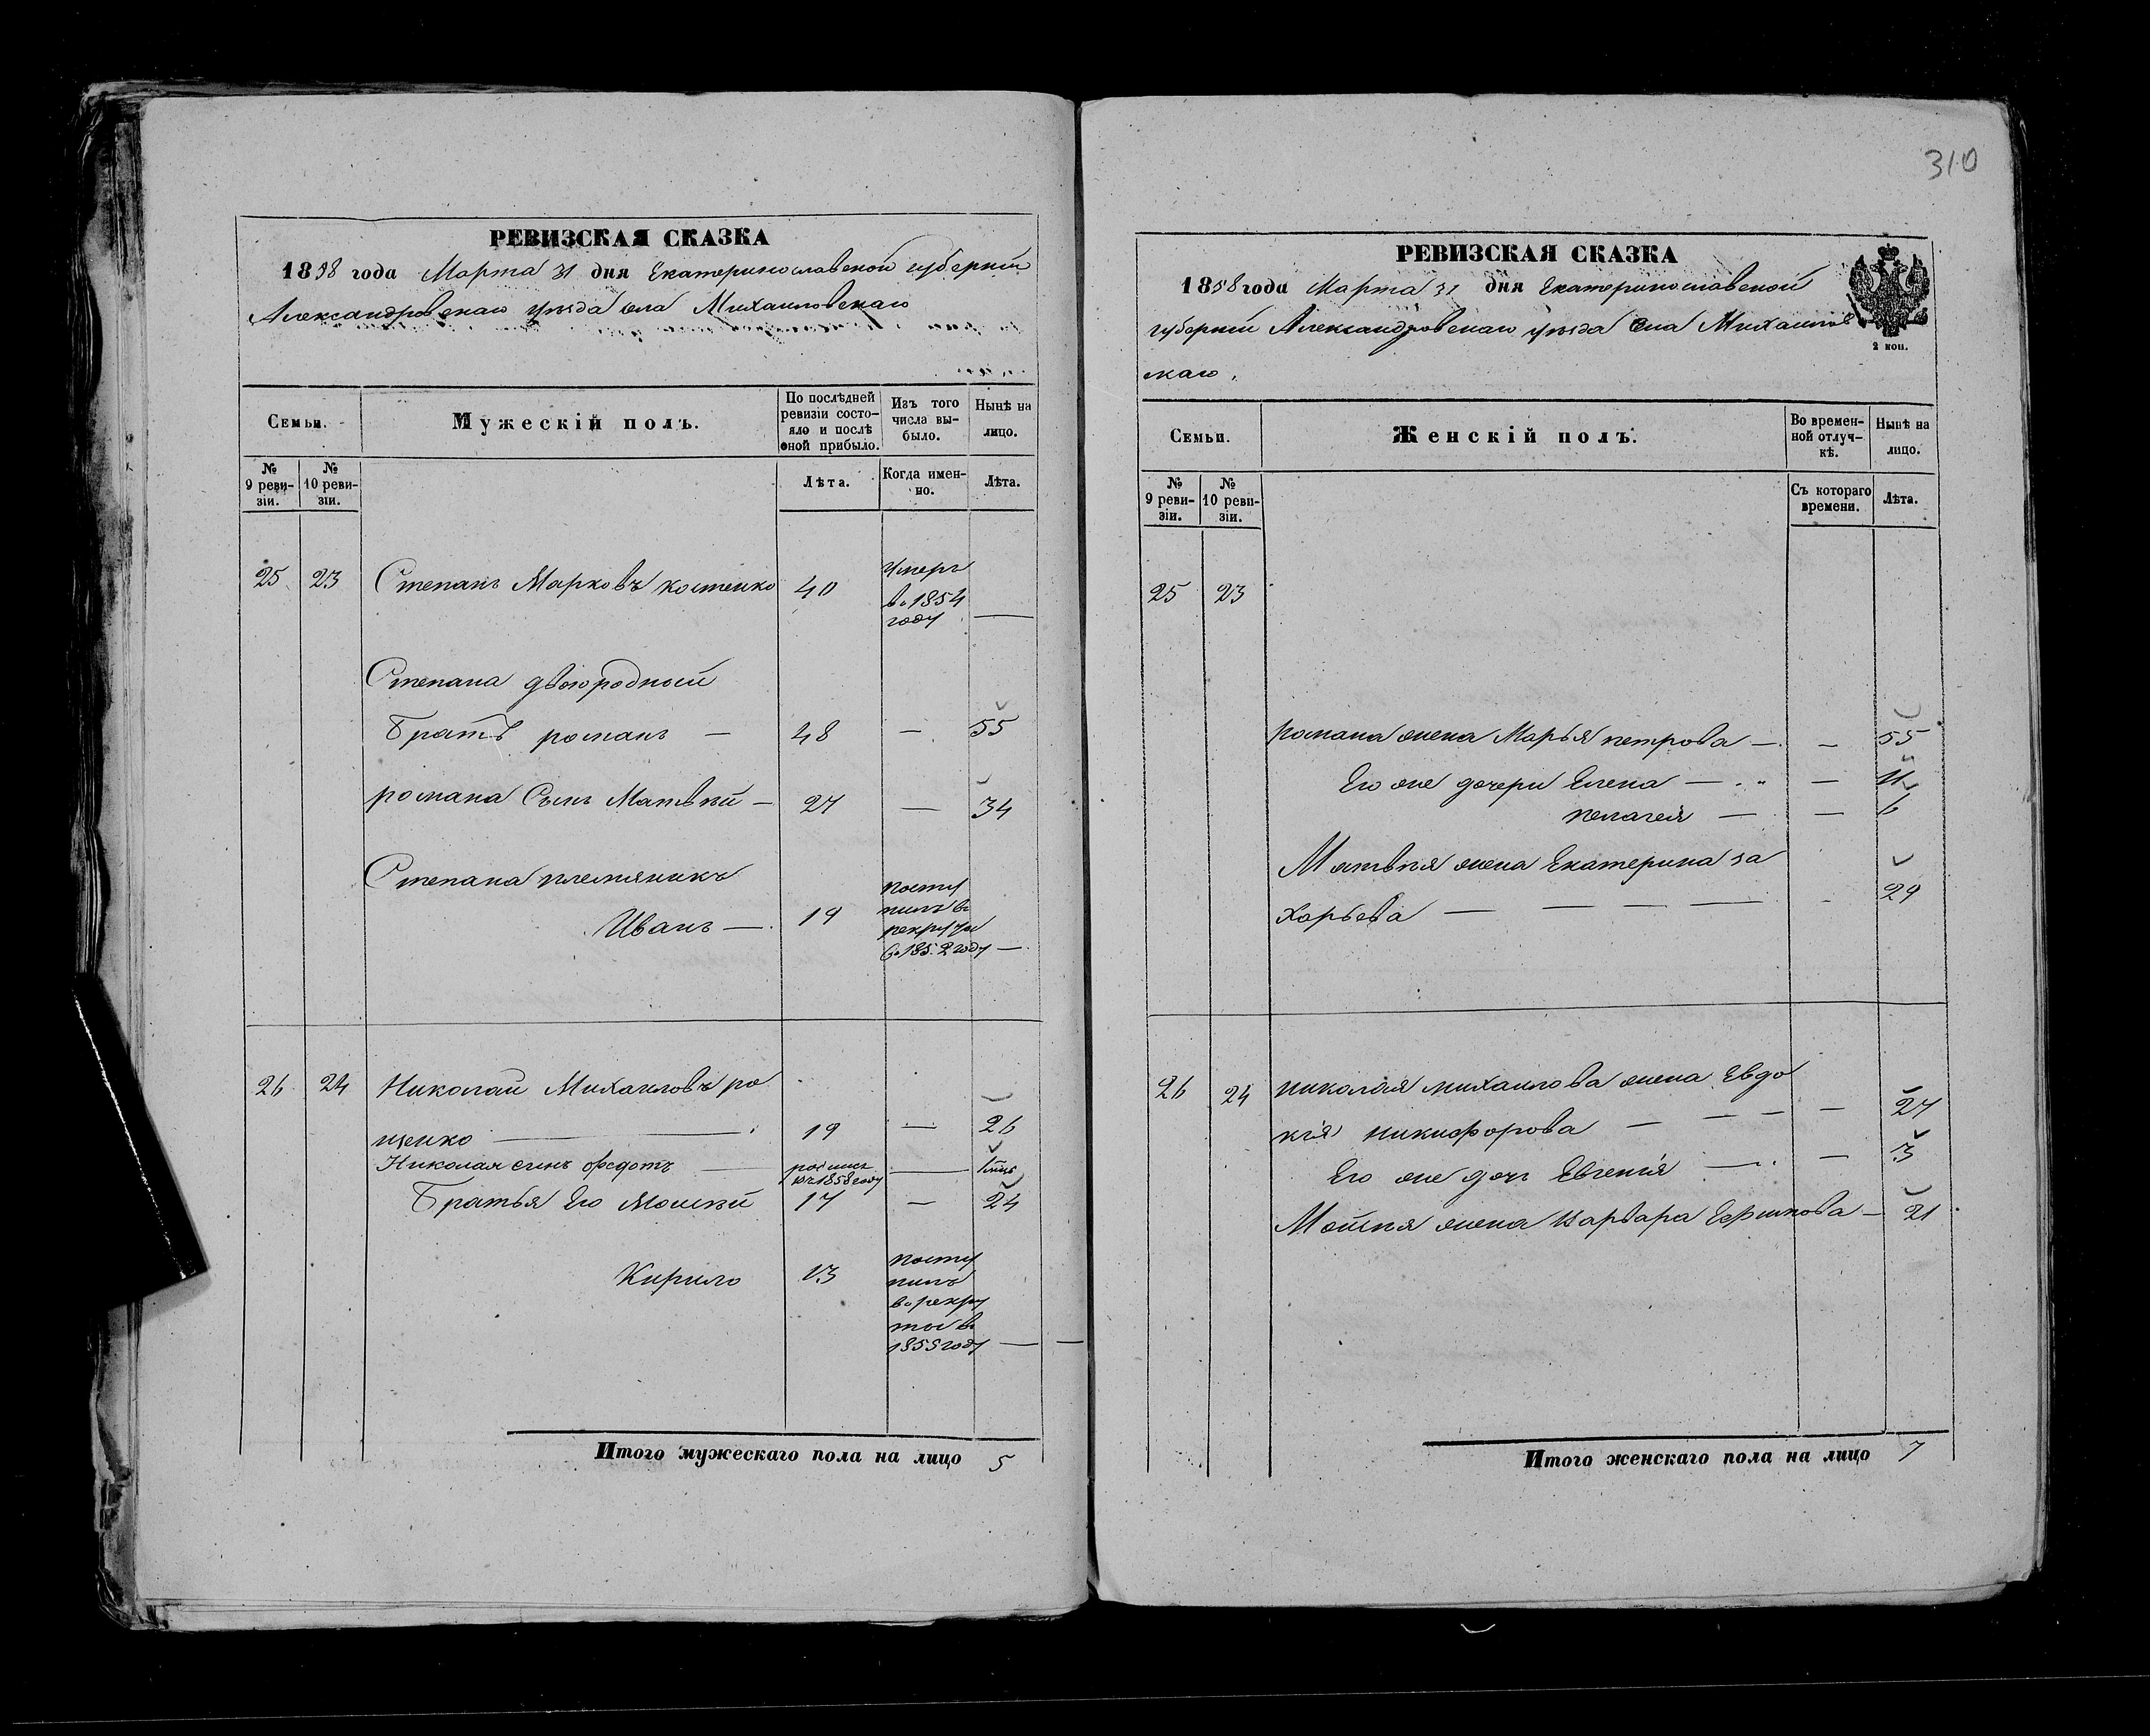 310
РЕВИЗСКАЯ СКАЗКА
1858 года Марта 31 дня Екатеринославской губерніи
Александровскаго уѣзда села Михайловскаго
Семьи. Мужескій полъ. По послѣдней ревизіи состояло и послѣ оной прибыло. Изъ того числа выбыло. Нынѣ на лицо.
№ 9 ревизіи. № 10 ревизіи. Лѣта. Когда именно. Лѣта.
25 23 Степанъ Марковъ костенко 40 Умеръ
въ 1854
году —
Степана двоюродный
Братъ романъ — 48 — 55
романа Сынъ Матвѣй — 27 — 34
Степана племяникъ
Иванъ — 19 посту
пилъ въ
рекруты
въ 1852 году —
26 24 Николай Михаиловъ ро
щенко — 19 — 26
Николая сынъ Федотъ — родился
въ 1858 году —
Братья Его Моисѣй 17 — 24
Кирило 13 посту
пилъ
въ рекру
ты въ
1855 году —
Итого мужескаго пола на лицо 5
РЕВИЗСКАЯ СКАЗКА
1858 года Марта 31 дня Екатеринославской
губерніи Александровскаго уѣзда села Михайлов
скаго.
2 коп.
Семьи. Женскій полъ. Во временной отлучкѣ. Нынѣ на лицо.
№ 9 ревизіи. № 10 ревизіи. Съ котораго времени. Лѣта.
25 23
романа жена Марья петрова — — 55
Его же дочери Елена — —
пелагея — — 6
Матвѣя жена Екатерина за
харьева — — — — 29
26 24 николая михаилова жена Евдо
кія никифорова — — — — 27
Его же дочь Евгенія — — 3
Моисѣя жена Варвара Ефимова — 21
Итого женскаго пола на лицо 7